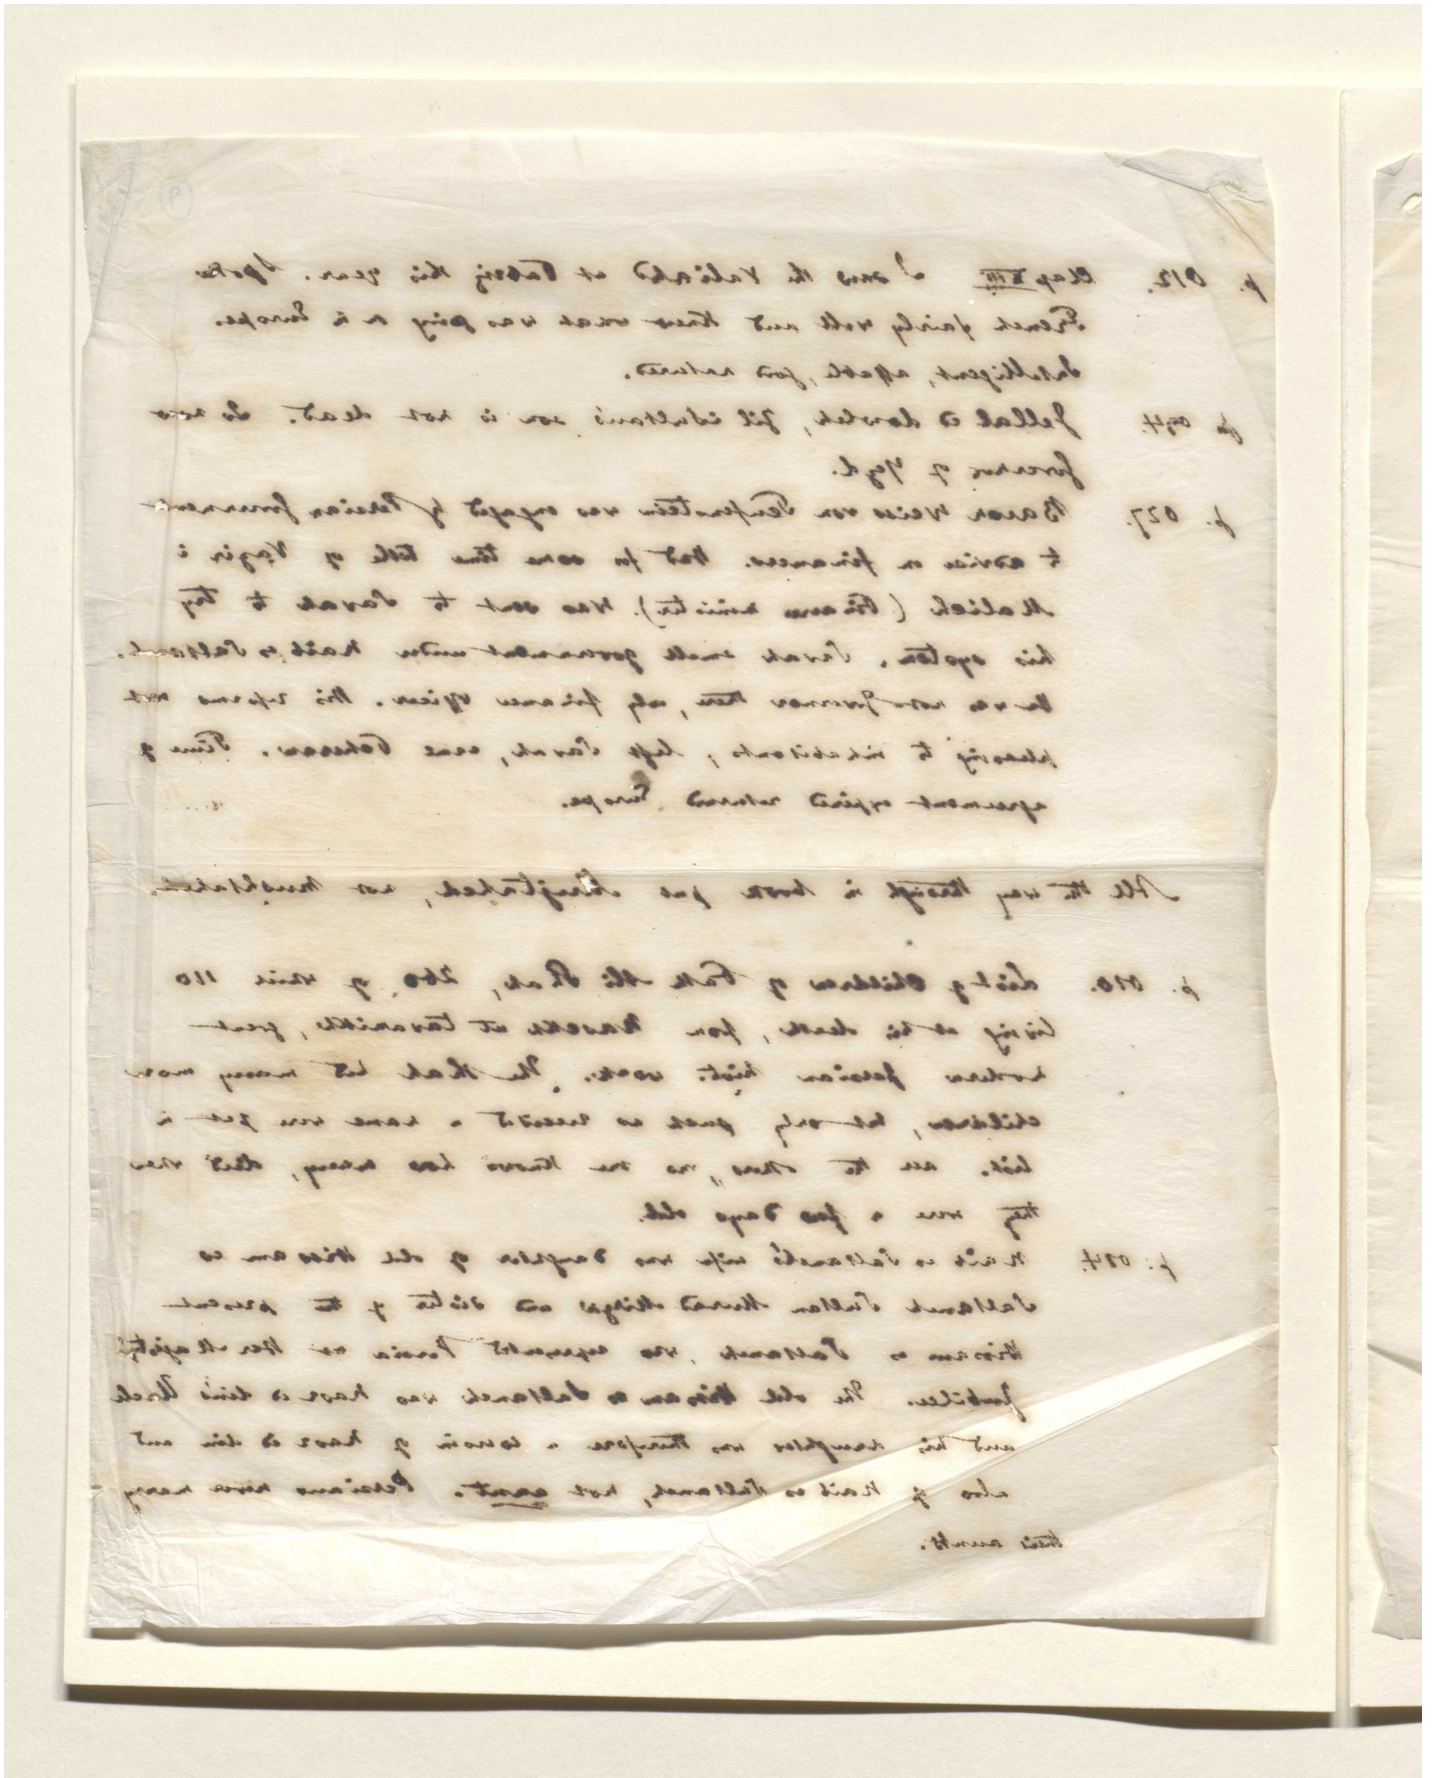 p. 012. Chap XIII I saw the Valiahd at Tabriz this year. Spoke
French fairly well and knew what was going on in Europe.
Intelligent, affable, good natured.
024. Jellal ed dowleh, Zil es Sultan's son is not dead. Is now
Governor of Yezd.
p. 027. Baron Weiss von Teufenstein was engaged by Persian Government
to advise on finances. Had for some time title of Vazir i
Maliah (Finance minister). Was sent to Savah to try
his system. Savah small government under Naib es Saltaneh.
He was not Governor there, only finance officer. His reforms not
pleasing to inhabitants, left Savah, came Teheran. Time of
agreement expired returned Europe.
All the way through in book put Mujtahed, not Mushtahed.
p. 070. List of Children of Fath Ali Shah, 260, of which 110
living at his death, from Nasekh ut tavarikh, great
modern persian hist. work. The Shah had many more
children, but only such as received a name were put in
list. All the others, no one knows how many, died when
they were a few days old.
p. 074. Naib es Saltaneh's wife was daughter of old Hissam es
Saltaneh Sultan Murad Mirza and sister of the present
Hissam es Saltaneh, who represented Persia at Her Majesty's
Jubilee. The old Hissam es Saltaneh was Nasr ed din's Uncle
and his daughter was therefore a cousin of Nasr ed din and
also of Naib es Saltaneh, not aunt. Persians never marry
their aunts.